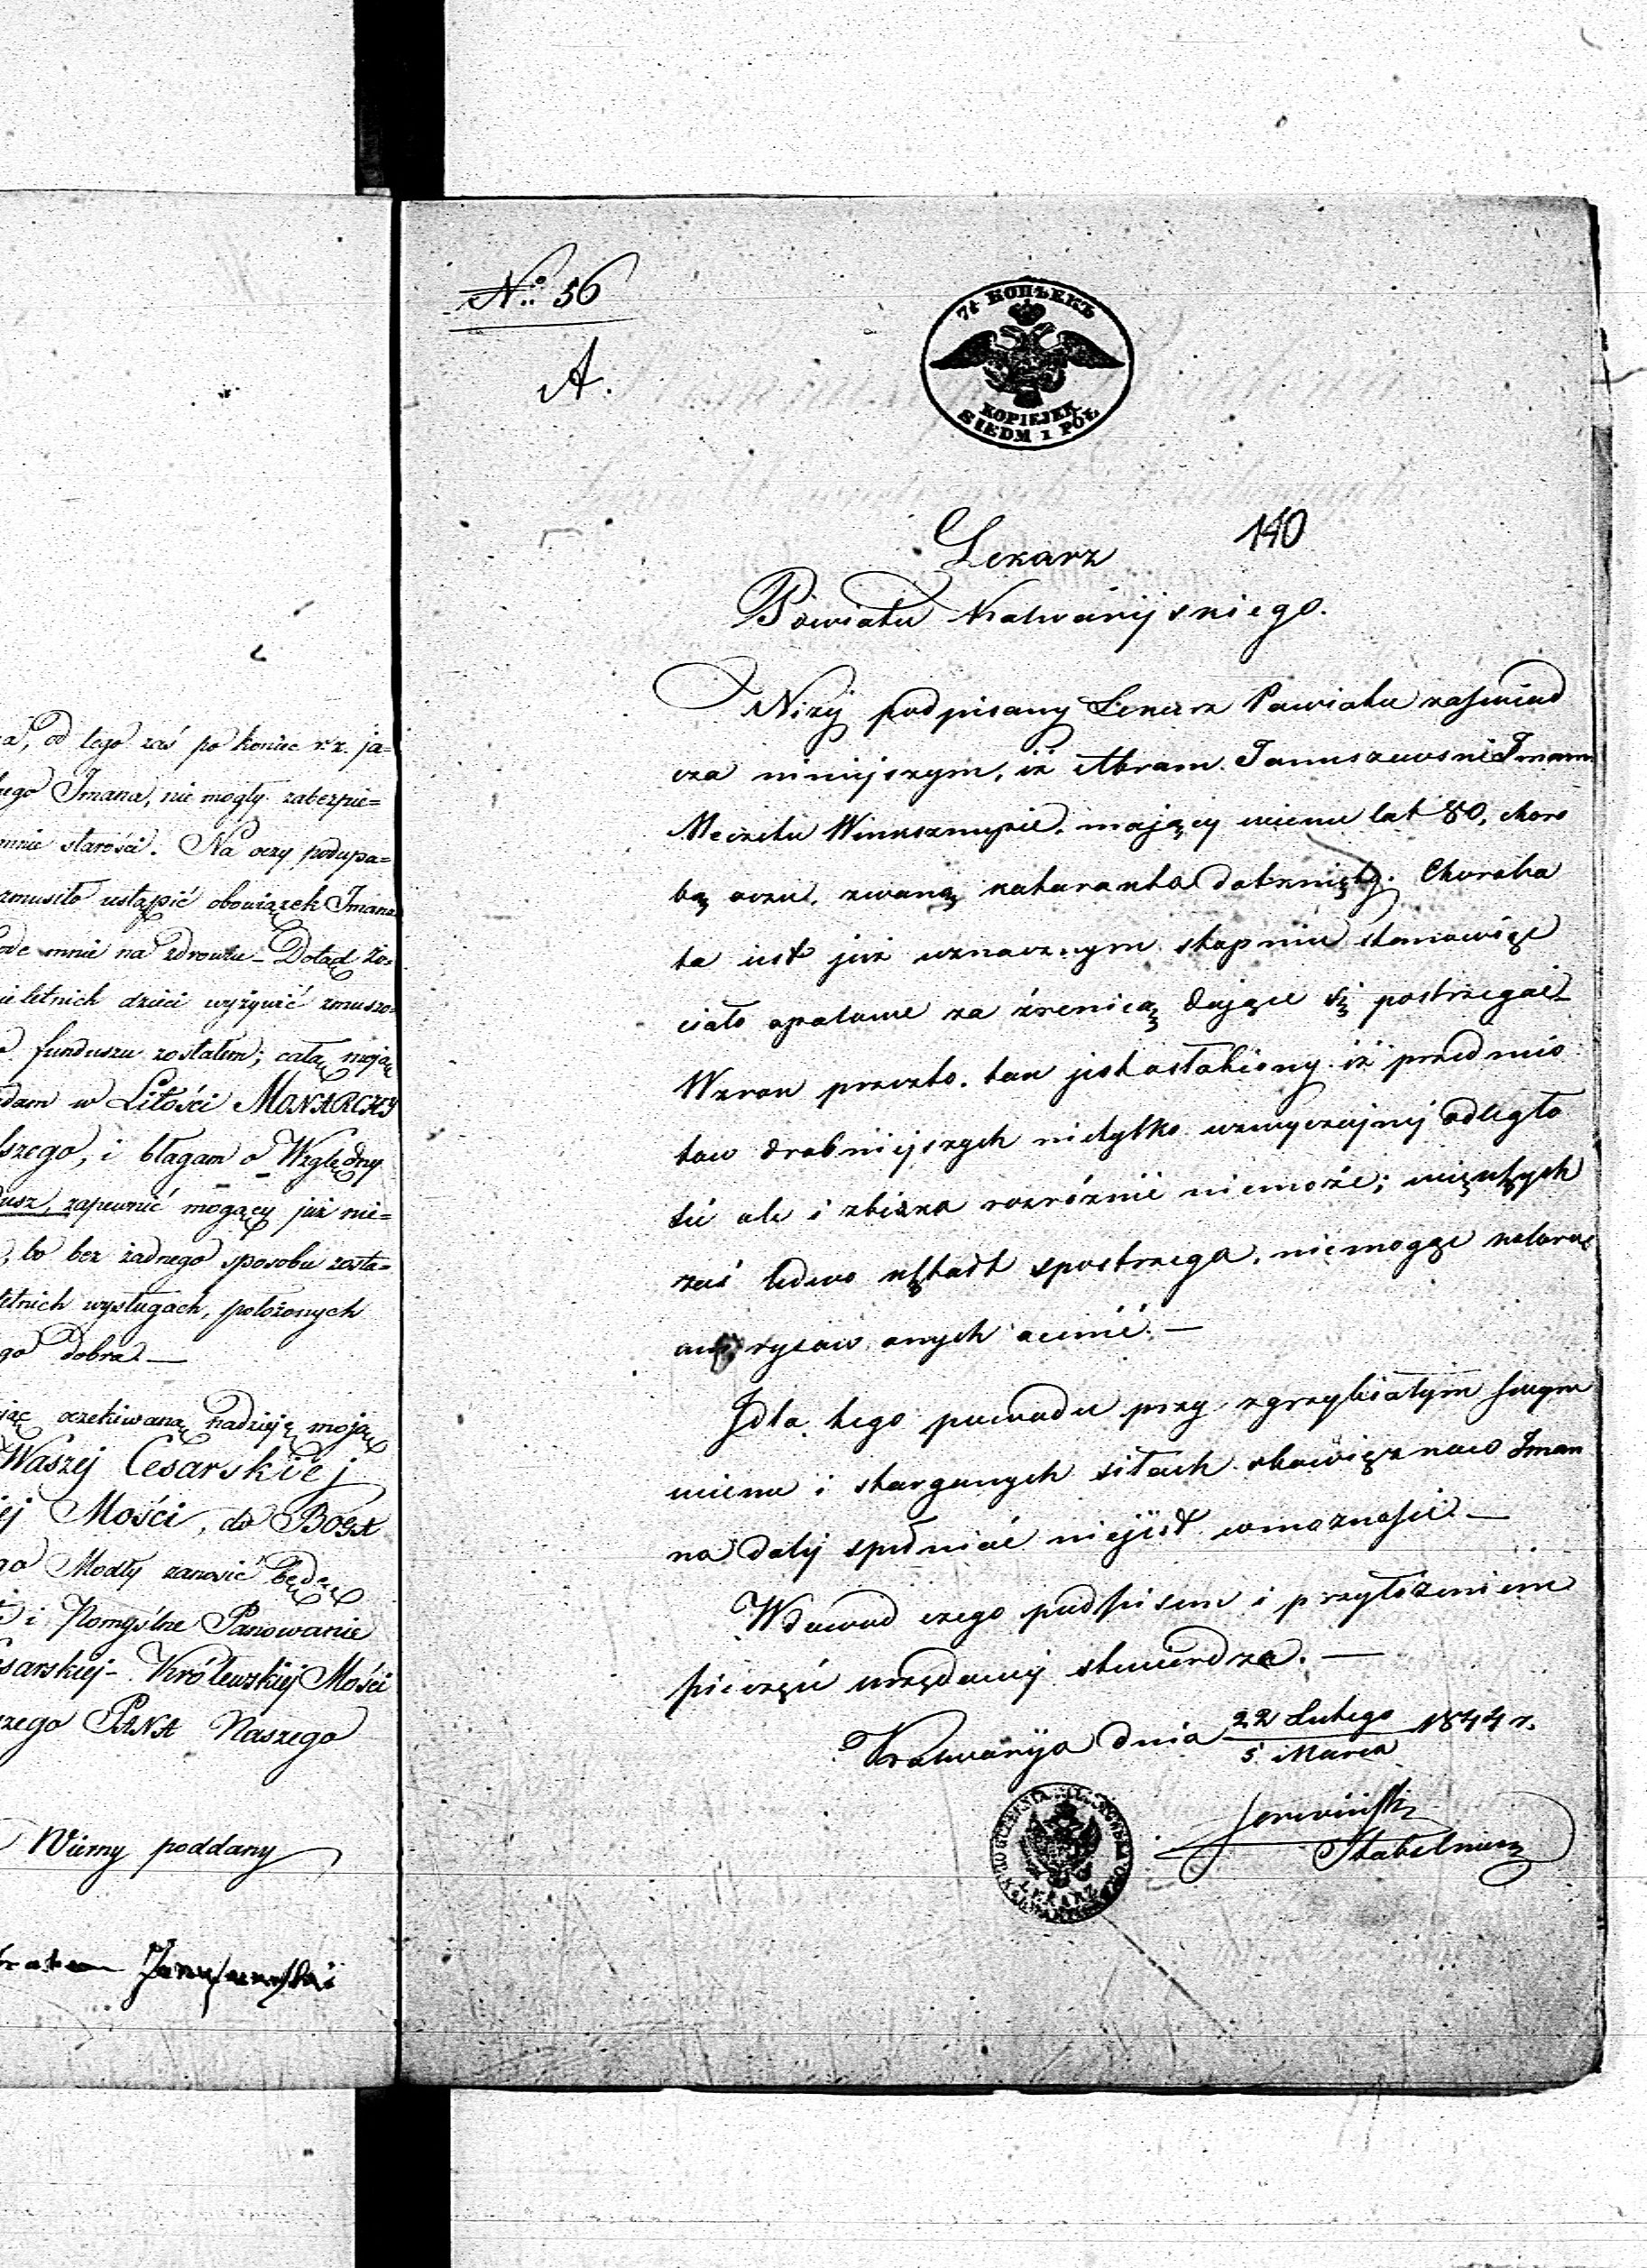 a, od tego zaś po koniec r.z. ja=
ego Imana, nie mogły zabezpie=
mnie starości. Na oczy podupa=
zmusiło ustąpić obowiązek Imana
ode mnie na zdrowiu - Dotąd żo=
letnich dzieci wyżywić zmuszo=
funduszu zostałem; całą moją
dam w Litości MONARCHY
szego, i błagam o Względny
usz, zapewnić mogący już nie=
, bo bez żadnego sposobu zosta=
letnich wysługach, położonych
go Dobra. —
jąc oczekiwaną nadzieję moją
Waszej Cesarskiej
ej Mości, do BOGA
go Modły zanosić będę
i Pomyślne Panowanie
sarskiej - Królewskiej Mości
szego PANA Naszego
Wierny poddany
Januszewski
No: 56
A.
7½ КОПѢЕКЪ
KOPIEJEK
SIEDM I PÓŁ
140
Lekarz
Powiatu Kalwaryjskiego.
Niżej podpisany Lekarz Powiatu zaświad
cza niniejszym, iż Abram Januszewski Imam
Meczetu Winksznupie, mający wieku lat 80, choro
bą oczu, zwaną katarakta dotknięty. Choroba
ta jest już wznacznym stopniu stanowiąc
ciało opalowe za źrenicą dające się postrzegać
Wzrok przeto tak jest osłabiony iż przedmio
tow drobniejszych nietylko wzwyczajnej odległo
ści ale i zbizka rozróżnić niemoże; większych
zaś ledwo kształt spostrzega, niemogąc kolorów
ani rysów onych ocenić. —
Idla tego powodu przy zgrzybiałym swym
wieku i starganych siłach obowiązkow Iman
na dalej spełniać niejest wmożności —
Wdowod czego podpisem i przyłożeniem
pieczęci urzędowej stwierdza. —
Kalwaryja dnia 22 Lutego / 5 Marca 1844 r.
LEKARZ